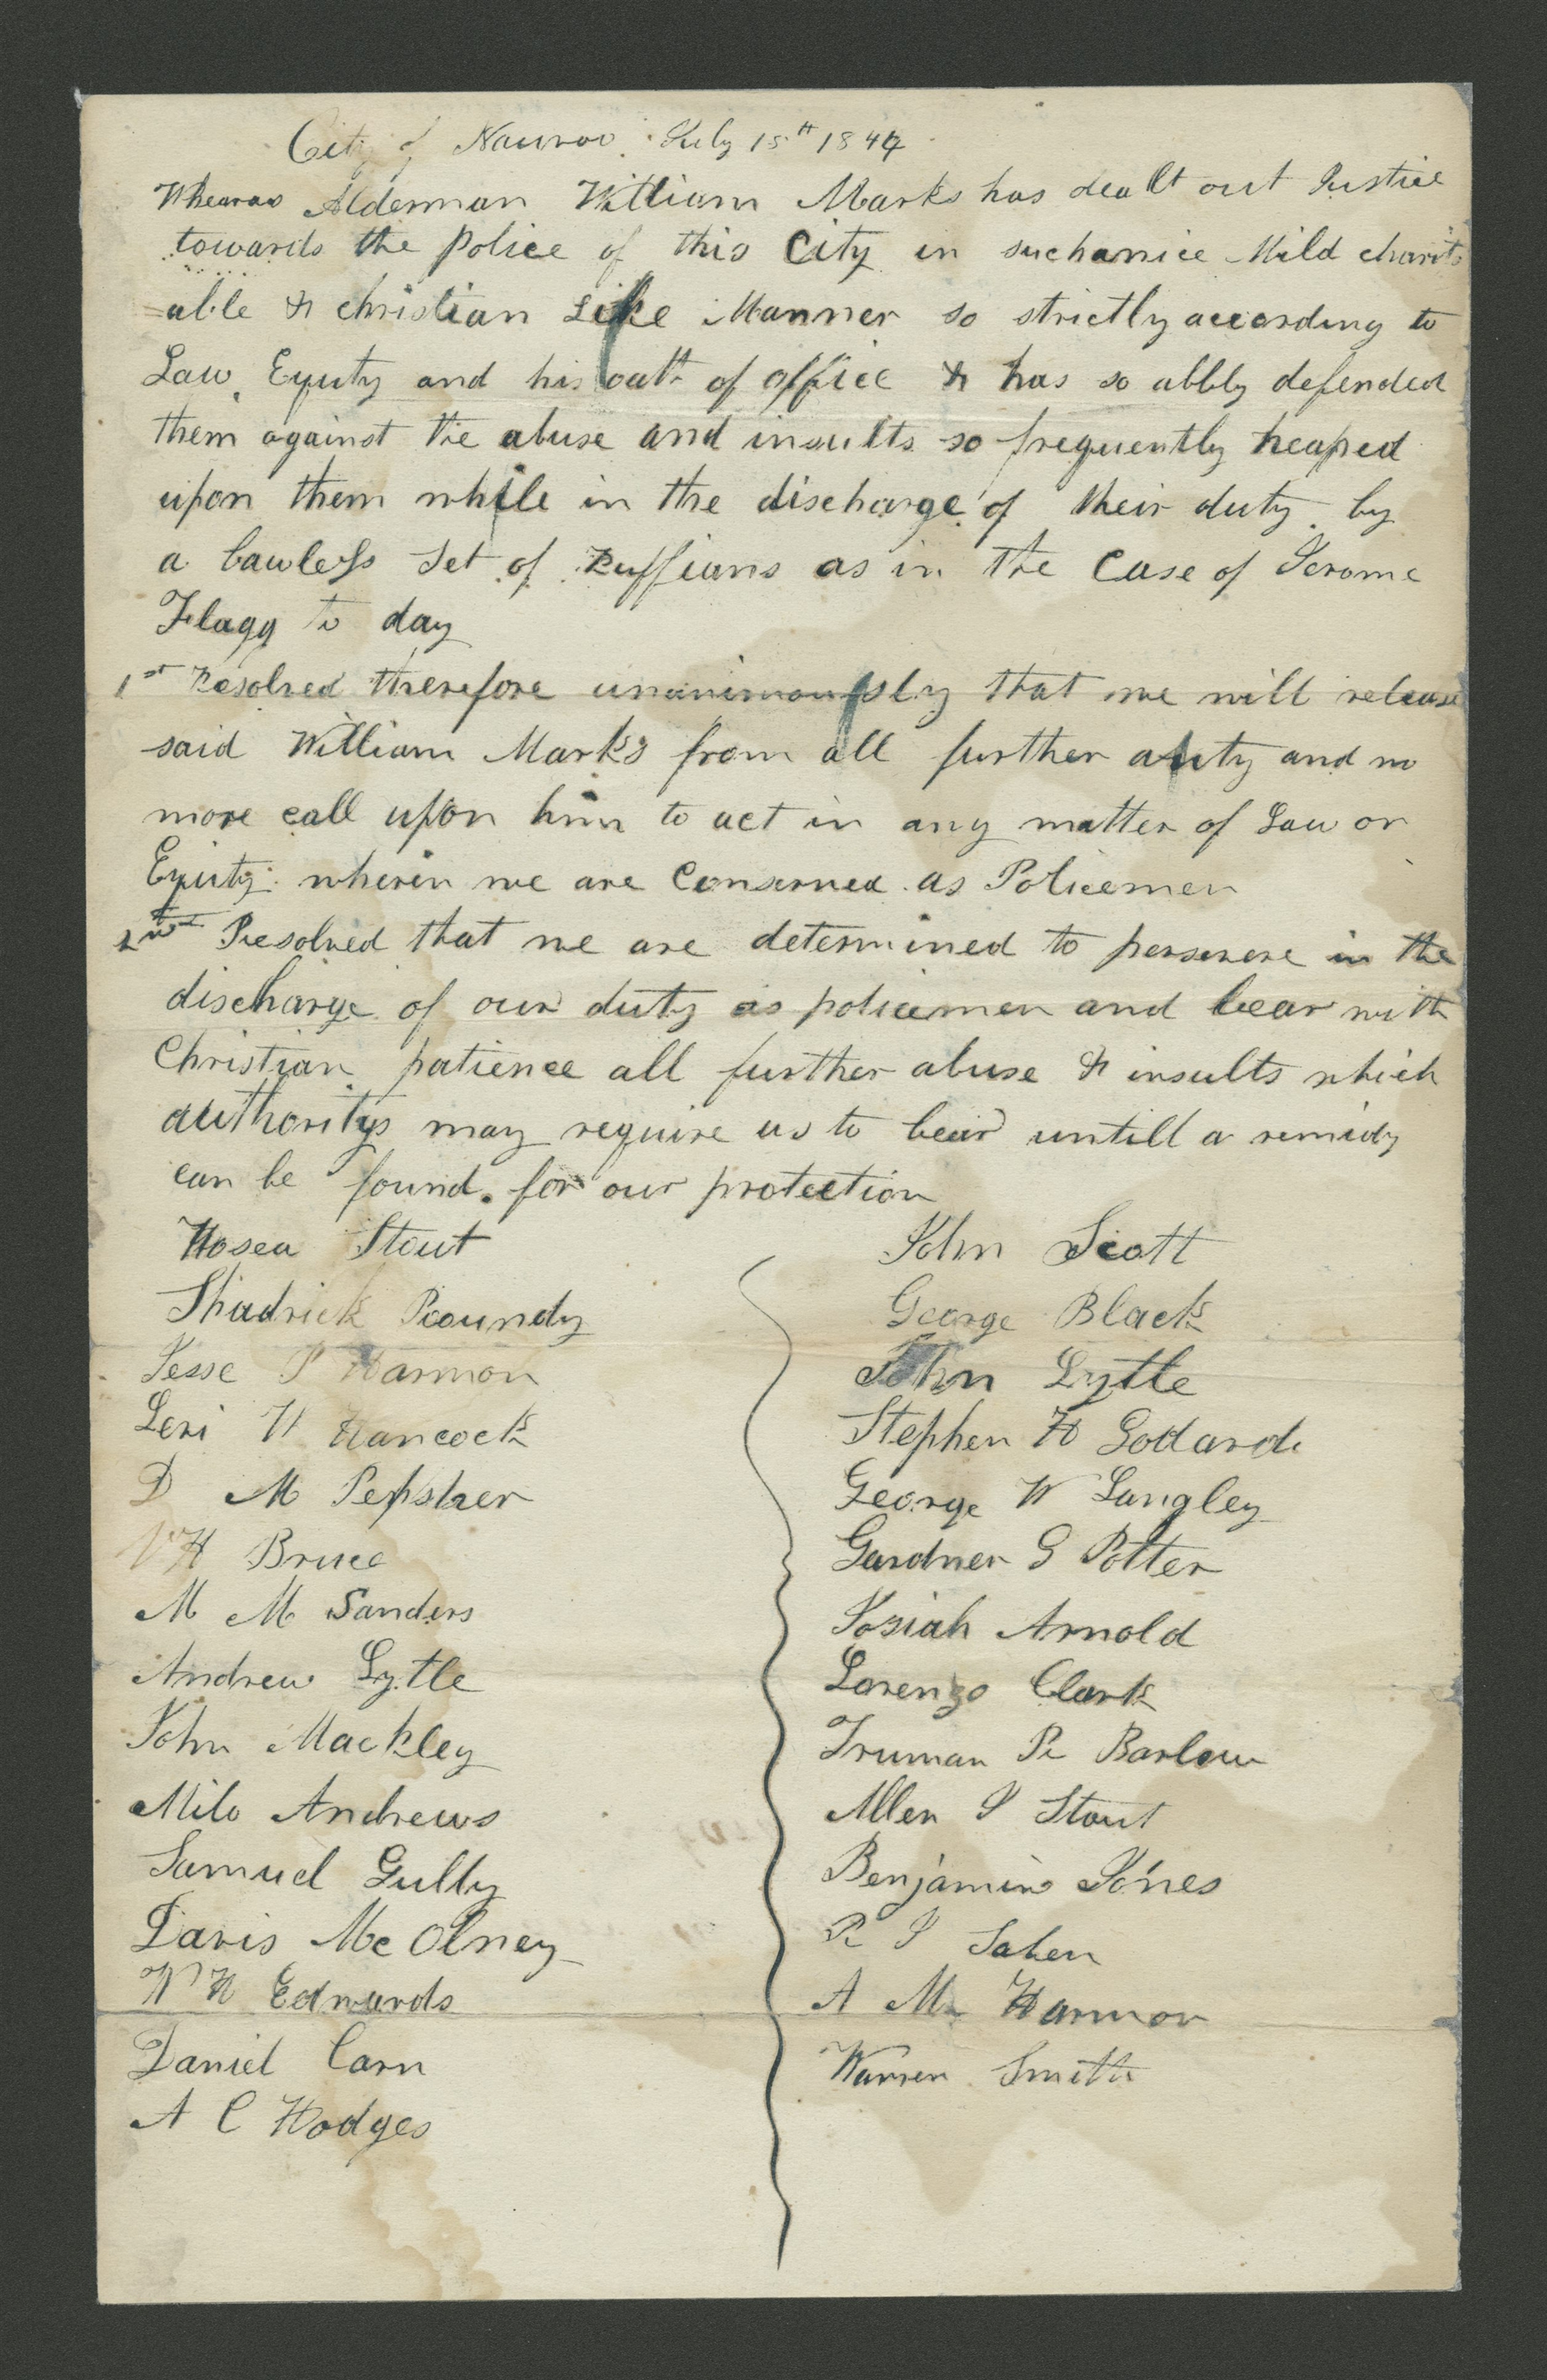 City of Nauvoo July 15th 1844
Whearas Alderman William Marks has dealt out Justice
towards the police of this City in suchanice Mild charit
=able & christian Like Manner so strictly according to
Law, Equity and his oath of office & has so ablly defended
them against the abuse and insults so frequently heaped
upon them while in the discharge of their duty by
a Lawless Set of Ruffians as in the Case of Jerome
Flagg to day
1st Resolved therefore unanimously that we will release
said William Marks from all further duty and no
more call upon him to act in any matter of Law or
Equity wherein we are Conserned as Policemen
2nd Resolved that we are determined to persevere in the
discharge of our duty as policemen and bear with
Christian patience all further abuse & insults which
authoritys may require us to bear untill a remidy
can be found for our protection
Hosea Stout
Shadrick Roundy
Jesse P Harmon
Levi W Hancock
D M Repsher
W H Bruce
M M Sanders
Andrew Lytle
John Mackley
Milo Andrews
Samuel Gully
Davis Mc Olney
W H Edwards
Daniel Carn
A C Hodges
John Scott
George Black
John Lytle
Stephen H Godard
George W Langley
Gardner G Potter
Josiah Arnold
Lorenzo Clark
Truman R Barlow
Allen J Stout
Benjamin Jones
R J
A M Harmon
Warren Smith